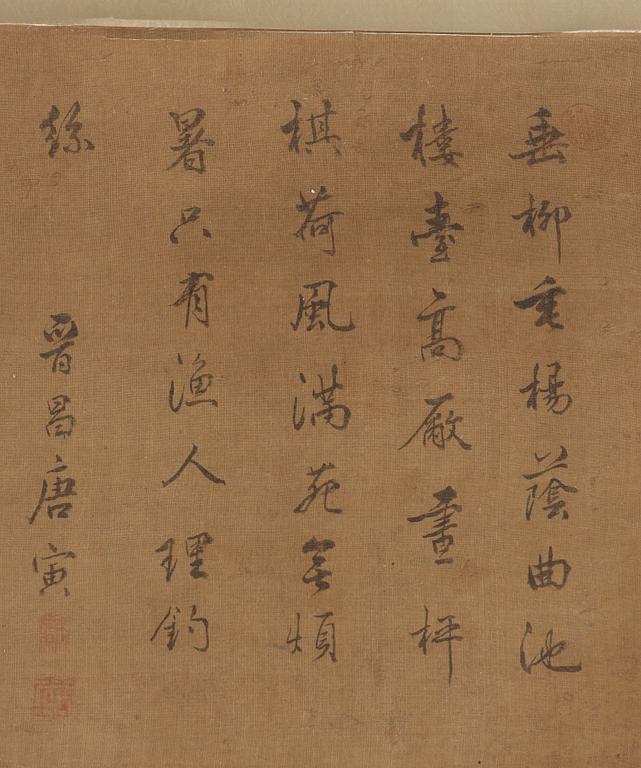 垂柳垂楊蔭曲池
樓臺高厰畫枰
棋荷風滿苑無煩
暑只有漁人理釣
絲 晉昌唐寅